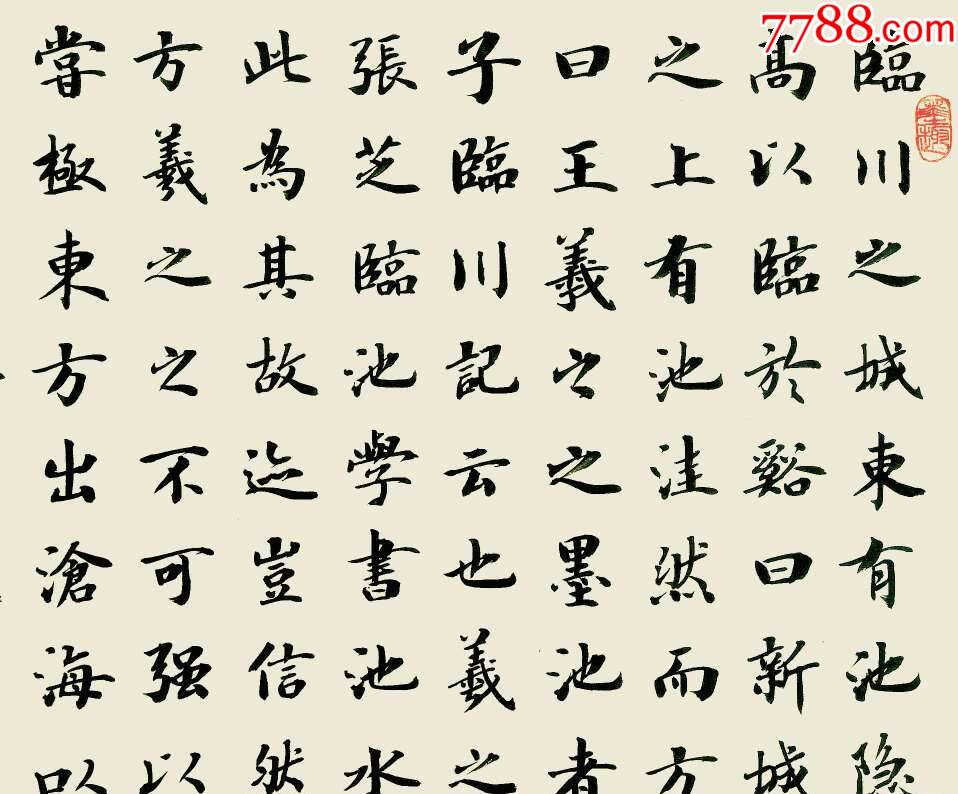 7788.com
臨川之城東有池隐
高以臨於谿曰新城
之上有池洼然而方
曰王羲之之墨池者
子臨川記云也羲之
張芝臨池學書池水
此為其故迹豈信然
方羲之之不可强以
嘗極東方出滄海以